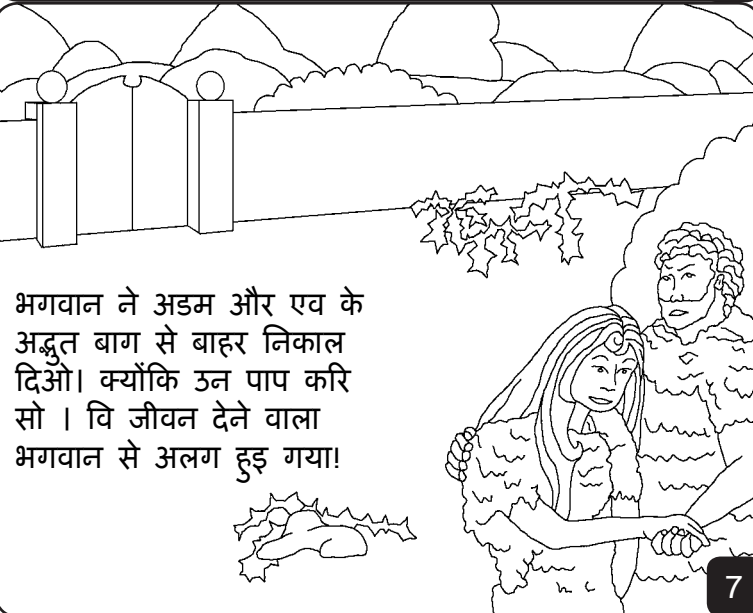 भगवान ने अडम और एव के
अद्भुत बाग से बाहर निकाल
दिओ। क्योंकि उन पाप करि
सो । वि जीवन देने वाला
भगवान से अलग हुइ गया!
7